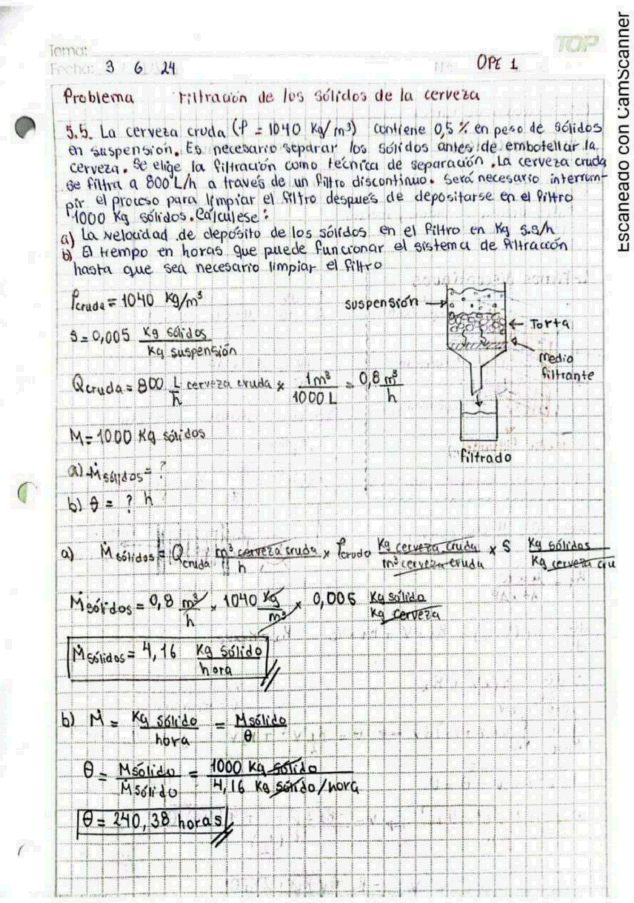 Tema:
TOP
Fecha: 3 6 24
OPE 1
Problema Filtración de los sólidos de la cerveza
5.5. La cerveza cruda (ρ = 1040 Kg/m³) contiene 0,5 % en peso de sólidos
en suspensión. Es necesario separar los sólidos antes de embotellar la
cerveza. Se elige la filtración como técnica de separación. La cerveza cruda
se filtra a 800 L/h a través de un filtro discontinuo. Será necesario interrum-
pir el proceso para limpiar el filtro después de depositarse en el filtro
1000 Kg sólidos. Calcúlese:
a) La velocidad de depósito de los sólidos en el filtro en Kg s.s/h
b) El tiempo en horas que puede funcionar el sistema de filtración
hasta que sea necesario limpiar el filtro
ρcruda = 1040 Kg/m³
suspensión
Torta
medio
filtrante
filtrado
S = 0,005 Kg sólidos / Kg suspensión
Qcruda = 800 L/h cerveza cruda × 1m³/1000 L = 0,8 m³/h
M = 1000 Kg sólidos
a) Ṁsólidos = ?
b) θ = ? h
a) Ṁsólidos = Qcruda m³ cerveza cruda/h × ρcruda Kg cerveza cruda/m³ cerveza cruda × S Kg sólidos/Kg cerveza cru
Ṁsólidos = 0,8 m³/h × 1040 Kg/m³ × 0,005 Kg sólido/Kg cerveza
Ṁsólidos = 4,16 Kg sólido/hora
b) Ṁ = Kg sólido/hora = Msólido/θ
θ = Msólido/Ṁsólido = 1000 Kg sólido/4,16 Kg sólido/hora
θ = 240,38 horas
Escaneado con CamScanner